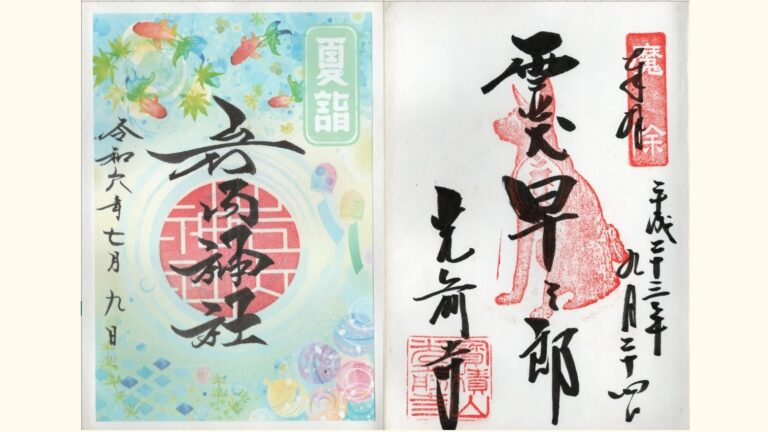 夏詣
神社
令和六年七月九日
魔除
奉拝
平成二十三年
九月二十四日
霊犬早太郎
光前寺
寶積山
光前寺